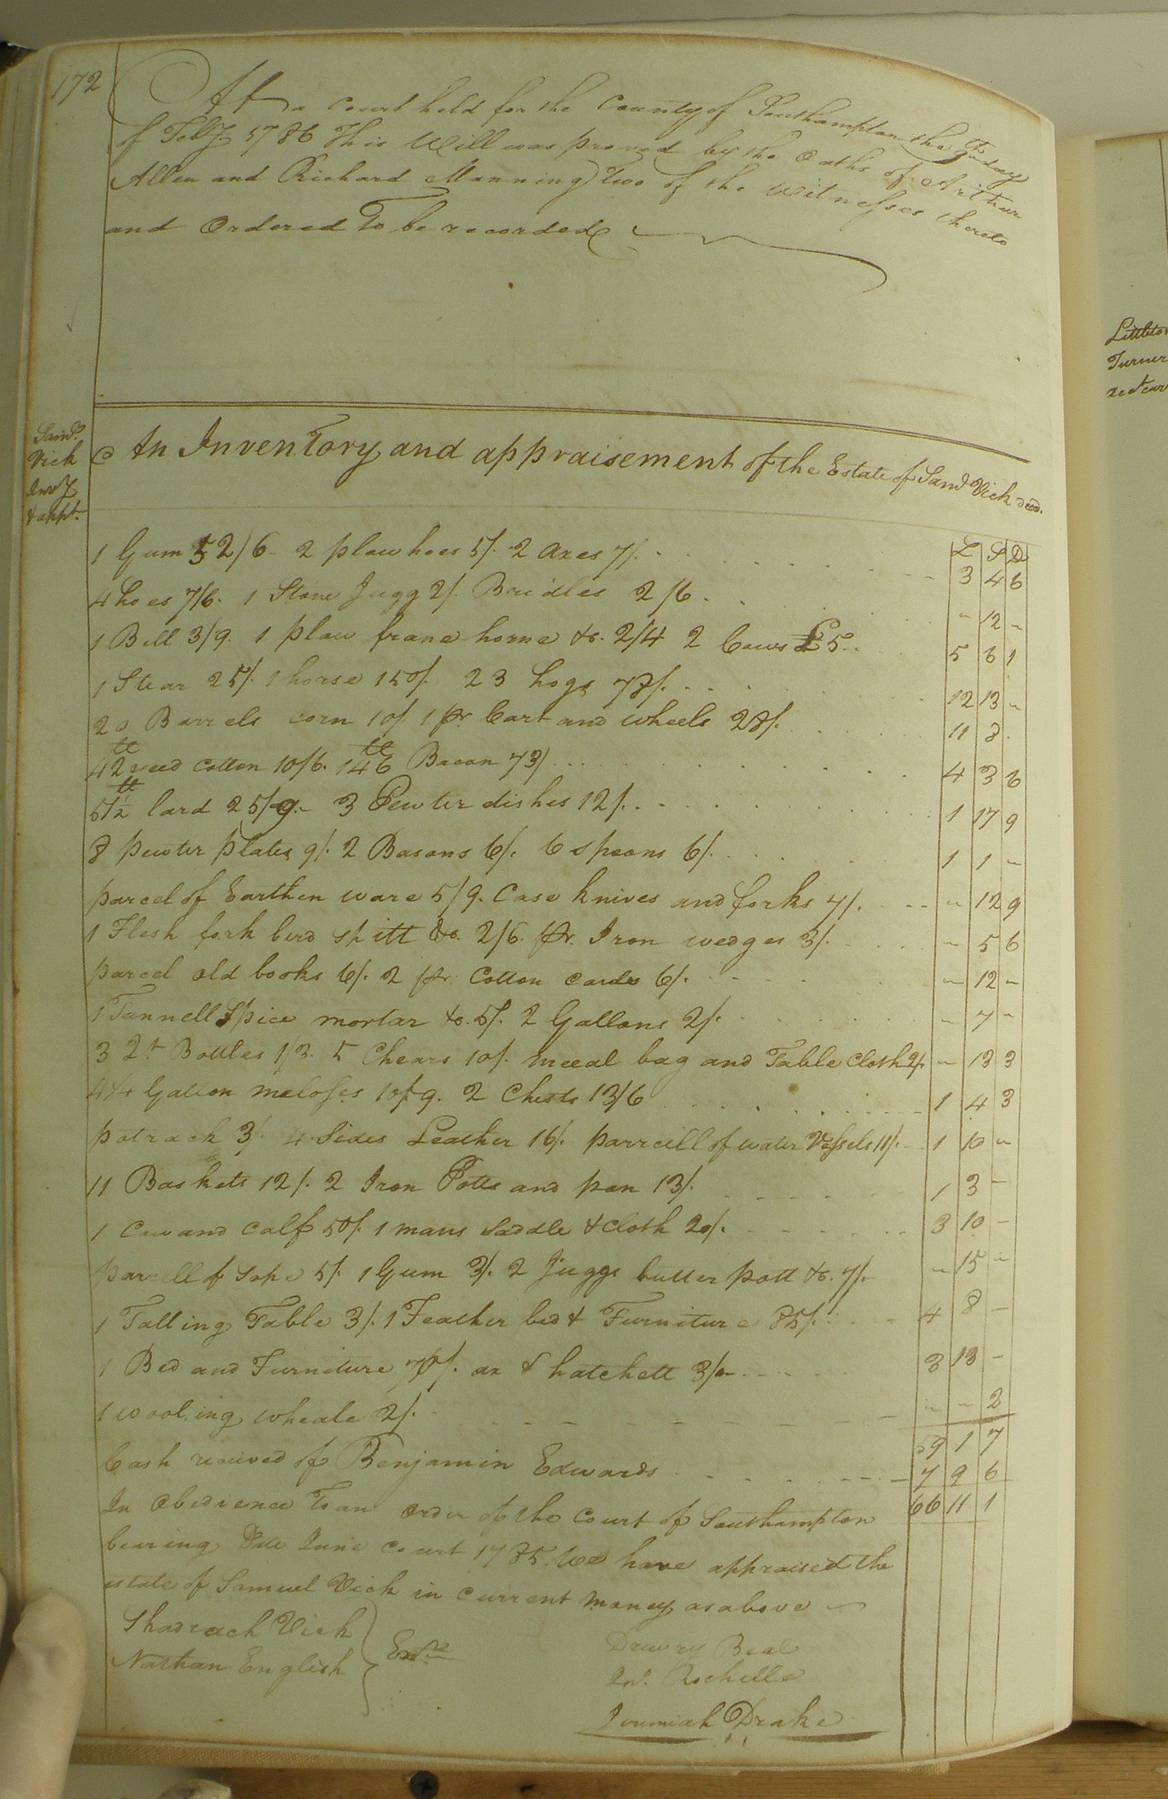 172
At a Court held for the County of Southampton the 9th day
of Feby 1786 This Will was proved by the Oaths of Arthur
Allen and Richard Manning Two of the Witnesses thereto
and Ordered To be recorded
Saml
Vick
Invy
& appt.
An Inventory and appraisement of the Estate of Saml Vick decd.
£ S D
1 Gum 52/6 2 plow hoes 5/. 2 axes 7/. 3 4 6
4 hoes 7/6. 1 Stone Jugg 2/. Bridles 2/6 - 12 -
1 Bell 3/9. 1 plow frame horne &c. 2/4 2 Cows £5 5 6 1
1 Stear 25/. 1 horse 150/. 23 hogs 78/. 12 13 -
20 Barrels corn 10/. 1 pr Cart and wheels 28/. 11 8
42 tt seed cotton 10/6. 146 tt Bacon 73/ 4 3 6
51½ tt lard 25/9. 3 Pewter dishes 12/. 1 17 9
8 pewter plates 9/. 2 Basons 6/. 6 spoons 6/. 1 1 -
parcel of Earthen ware 5/9. Case knives and forks 7/. - 12 9
1 Flesh fork bird spitt &c. 2/6. pr. Iron wedges 3/. - 5 6
parcel old books 6/. 2 pr Cotton cards 6/. - 12 -
1 Tunnell Spice mortar &c. 5/. 2 Gallons 2/. - 7 -
3 2t Bottles 1/3. 5 Chears 10/. meal bag and Table Cloth 2/. - 13 3
4¼ Gallon melosses 10/9. 2 Chests 13/6 1 4 3
potrack 3/ 4 Sides Leather 16/. parrcell of water Vessels 11/. 1 10 -
11 Baskets 12/. 2 Iron Potts and pan 13/. 1 3 -
1 Cow and Calf 50/. 1 mans Saddle & cloth 20/. 3 10 -
parcell of Sope 5/. 1 Gum 3/. 2 Juggs butter pott &c. 7/. - 15 -
1 Falling Table 3/. 1 Feather bed & Furniture 85/. 4 8 -
1 Bed and Furniture 70/. ax & hatchett 3/. 3 13 -
1 wooling wheale 2/. - - 2
59 1 7
Cash received of Benjamin Edwards 7 9 6
In Obedience To an order of the Court of Southampton 66 11 1
bearing Date June court 1785. We have appraised the
estate of Samuel Vick in current money as above
Shadrach Vick
Nathan English
Exrs
Drewry Beal
Jno. Rochelle
Jeremiah Drake
Littleton
Turner